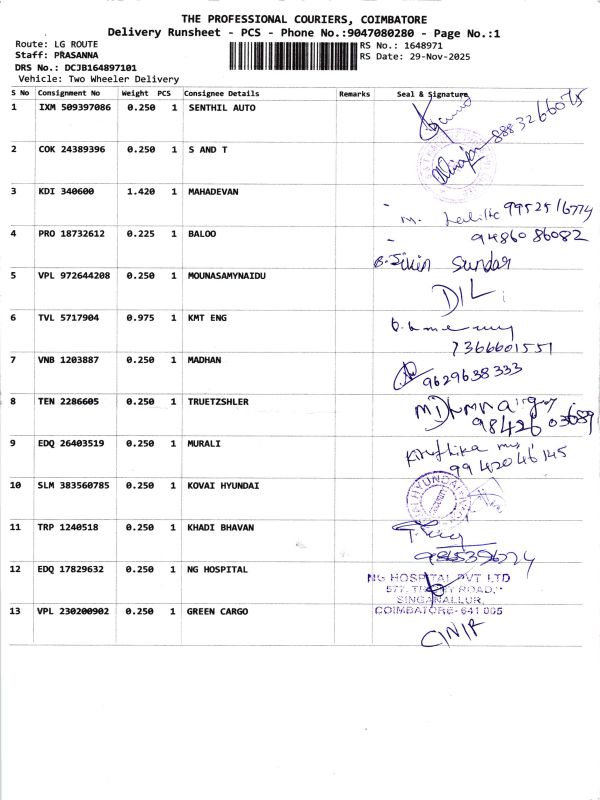 THE PROFESSIONAL COURIERS, COIMBATORE
Delivery Runsheet - PCS - Phone No.:9047080280 - Page No.:1
Route: LG ROUTE RS No.: 1648971
Staff: PRASANNA RS Date: 29-Nov-2025
DRS No.: DCJB164897101
Vehicle: Two Wheeler Delivery
S No Consignment No Weight PCS Consignee Details Remarks Seal & Signature
1 IXM 509397086 0.250 1 SENTHIL AUTO
8883266075
2 COK 24389396 0.250 1 S AND T
3 KDI 340600 1.420 1 MAHADEVAN
m. 9952516774
4 PRO 18732612 0.225 1 BALOO
9486086082
Sundar
5 VPL 972644208 0.250 1 MOUNASAMYNAIDU
DIL
6 TVL 5717904 0.975 1 KMT ENG
7366601551
7 VNB 1203887 0.250 1 MADHAN
9629638333
8 TEN 2286605 0.250 1 TRUETZSHLER
9842603689
9 EDQ 26403519 0.250 1 MURALI
9942046145
10 SLM 383560785 0.250 1 KOVAI HYUNDAI
HYUNDAI
11 TRP 1240518 0.250 1 KHADI BHAVAN
12 EDQ 17829632 0.250 1 NG HOSPITAL
NG HOSPITAL PVT LTD
577, ROAD,
SINGANALLUR,
COIMBATORE-641 005
13 VPL 230200902 0.250 1 GREEN CARGO